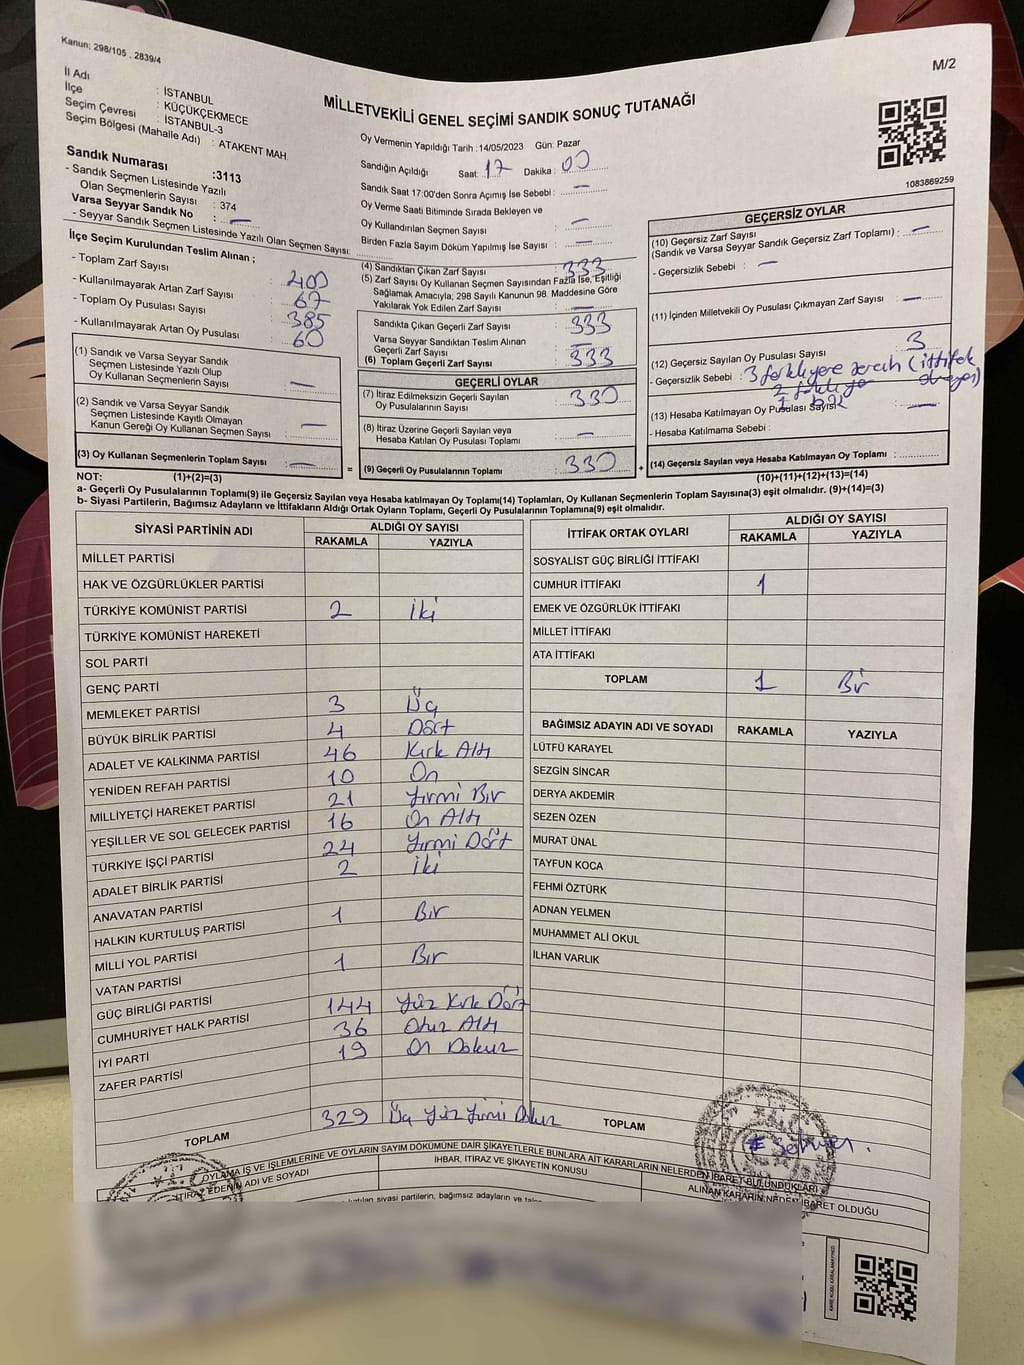 Kanun; 298/105 , 2839/4
M/2
İl Adı : İSTANBUL
İlçe : KÜÇÜKÇEKMECE
Seçim Çevresi : İSTANBUL-3
Seçim Bölgesi (Mahalle Adı) : ATAKENT MAH.
MİLLETVEKİLİ GENEL SEÇİMİ SANDIK SONUÇ TUTANAĞI
Sandık Numarası :3113
- Sandık Seçmen Listesinde Yazılı
Olan Seçmenlerin Sayısı : 374
Varsa Seyyar Sandık No : —
- Seyyar Sandık Seçmen Listesinde Yazılı Olan Seçmen Sayısı
İlçe Seçim Kurulundan Teslim Alınan ;
- Toplam Zarf Sayısı : 400
- Kullanılmayarak Artan Zarf Sayısı : 67
- Toplam Oy Pusulası Sayısı : 385
- Kullanılmayarak Artan Oy Pusulası : 60
(1) Sandık ve Varsa Seyyar Sandık
Seçmen Listesinde Yazılı Olup
Oy Kullanan Seçmenlerin Sayısı : —
(2) Sandık ve Varsa Seyyar Sandık
Seçmen Listesinde Kayıtlı Olmayan
Kanun Gereği Oy Kullanan Seçmen Sayısı : —
(3) Oy Kullanan Seçmenlerin Toplam Sayısı : —
Oy Vermenin Yapıldığı Tarih :14/05/2023 Gün: Pazar
Sandığın Açıldığı Saat: 17 Dakika : 00
Sandık Saat 17:00'den Sonra Açımış İse Sebebi : —
Oy Verme Saati Bitiminde Sırada Bekleyen ve
Oy Kullandırılan Seçmen Sayısı : —
Birden Fazla Sayım Döküm Yapılmış İse Sayısı : —
(4) Sandıktan Çıkan Zarf Sayısı : 333
(5) Zarf Sayısı Oy Kullanan Seçmen Sayısından Fazla İse, Eşitliği
Sağlamak Amacıyla; 298 Sayılı Kanunun 98. Maddesine Göre
Yakılarak Yok Edilen Zarf Sayısı : —
Sandıkta Çıkan Geçerli Zarf Sayısı : 333
Varsa Seyyar Sandıktan Teslim Alınan
Geçerli Zarf Sayısı : —
(6) Toplam Geçerli Zarf Sayısı : 333
GEÇERLİ OYLAR
(7) İtiraz Edilmeksizin Geçerli Sayılan
Oy Pusulalarının Sayısı : 330
(8) İtiraz Üzerine Geçerli Sayılan veya
Hesaba Katılan Oy Pusulası Toplamı : —
= (9) Geçerli Oy Pusulalarının Toplamı : 330 +
1083869259
GEÇERSİZ OYLAR
(10) Geçersiz Zarf Sayısı
(Sandık ve Varsa Seyyar Sandık Geçersiz Zarf Toplamı) : —
- Geçersizlik Sebebi : —
(11) İçinden Milletvekili Oy Pusulası Çıkmayan Zarf Sayısı : —
(12) Geçersiz Sayılan Oy Pusulası Sayısı : 3
- Geçersizlik Sebebi : 3 farklı yere tercih (ittifak
(13) Hesaba Katılmayan Oy Pusulası Sayısı : —
- Hesaba Katılmama Sebebi :
(14) Geçersiz Sayılan veya Hesaba Katılmayan Oy Toplamı :
NOT: (1)+(2)=(3) (10)+(11)+(12)+(13)=(14)
a- Geçerli Oy Pusulalarının Toplamı(9) ile Geçersiz Sayılan veya Hesaba katılmayan Oy Toplamı(14) Toplamları, Oy Kullanan Seçmenlerin Toplam Sayısına(3) eşit olmalıdır. (9)+(14)=(3)
b- Siyasi Partilerin, Bağımsız Adayların ve İttifakların Aldığı Ortak Oyların Toplamı, Geçerli Oy Pusulalarının Toplamına(9) eşit olmalıdır.
SİYASİ PARTİNİN ADI ALDIĞI OY SAYISI
RAKAMLA YAZIYLA
MİLLET PARTİSİ
HAK VE ÖZGÜRLÜKLER PARTİSİ
TÜRKİYE KOMÜNİST PARTİSİ 2 İki
TÜRKİYE KOMÜNİST HAREKETİ
SOL PARTİ
GENÇ PARTİ
MEMLEKET PARTİSİ 3 Üç
BÜYÜK BİRLİK PARTİSİ 4 Dört
ADALET VE KALKINMA PARTİSİ 46 Kırk Altı
YENİDEN REFAH PARTİSİ 10 On
MİLLİYETÇİ HAREKET PARTİSİ 21 Yirmi Bir
YEŞİLLER VE SOL GELECEK PARTİSİ 16 On Altı
TÜRKİYE İŞÇİ PARTİSİ 24 Yirmi Dört
ADALET BİRLİK PARTİSİ 2 İki
ANAVATAN PARTİSİ
HALKIN KURTULUŞ PARTİSİ 1 Bir
MİLLİ YOL PARTİSİ
VATAN PARTİSİ 1 Bir
GÜÇ BİRLİĞİ PARTİSİ
CUMHURİYET HALK PARTİSİ 144 Yüz Kırk Dört
İYİ PARTİ 36 Otuz Altı
ZAFER PARTİSİ 19 On Dokuz
TOPLAM 329 Üç Yüz Yirmi Dokuz
İTTİFAK ORTAK OYLARI ALDIĞI OY SAYISI
RAKAMLA YAZIYLA
SOSYALİST GÜÇ BİRLİĞİ İTTİFAKI
CUMHUR İTTİFAKI 1
EMEK VE ÖZGÜRLÜK İTTİFAKI
MİLLET İTTİFAKI
ATA İTTİFAKI
TOPLAM 1 Bir
BAĞIMSIZ ADAYIN ADI VE SOYADI RAKAMLA YAZIYLA
LÜTFÜ KARAYEL
SEZGİN SİNCAR
DERYA AKDEMİR
SEZEN ÖZEN
MURAT ÜNAL
TAYFUN KOCA
FEHMİ ÖZTÜRK
ADNAN YELMEN
MUHAMMET ALİ OKUL
İLHAN VARLIK
TOPLAM
OYLAMA İŞ VE İŞLEMLERİNE VE OYLARIN SAYIM DÖKÜMÜNE DAİR ŞİKAYETLERLE BUNLARA AİT KARARLARIN NELERDEN İBARET BULUNDUKLARI
İTİRAZ EDENİN ADI VE SOYADI
İHBAR, İTİRAZ VE ŞİKAYETİN KONUSU
ALINAN KARARIN NEDEN İBARET OLDUĞU
siyasi partilerin, bağımsız adayların ve
KARE KODU KARALAMAYINIZ!